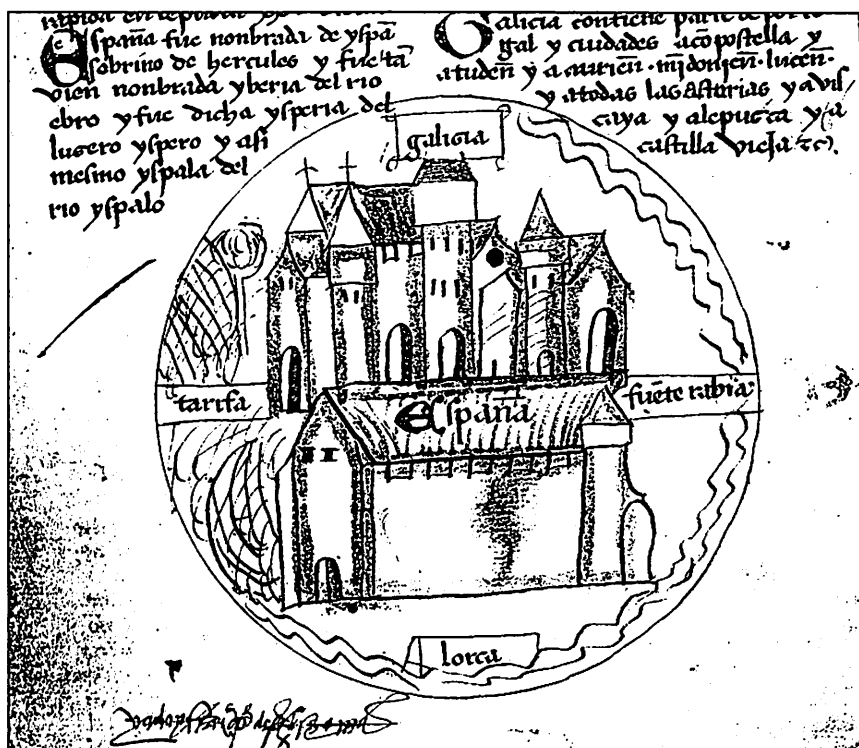 España fue nonbrada de yspã
sobrino de hercules y fue tã
vien nonbrada yberia del rio
ebro y fue dicha ysperia del
lucero yspero y asi
mesmo yspala del
rio yspalo
Galicia contiene parte de porto
gal y ciudades a cõpostella y
a tudeñ y a aurieñ · mĩdonieñ · luceñ ·
y a todas las asturias y a vis
caya y alepusca y a
castilla vieja
galicia
tarifa
España
fuẽte rabia
lorca